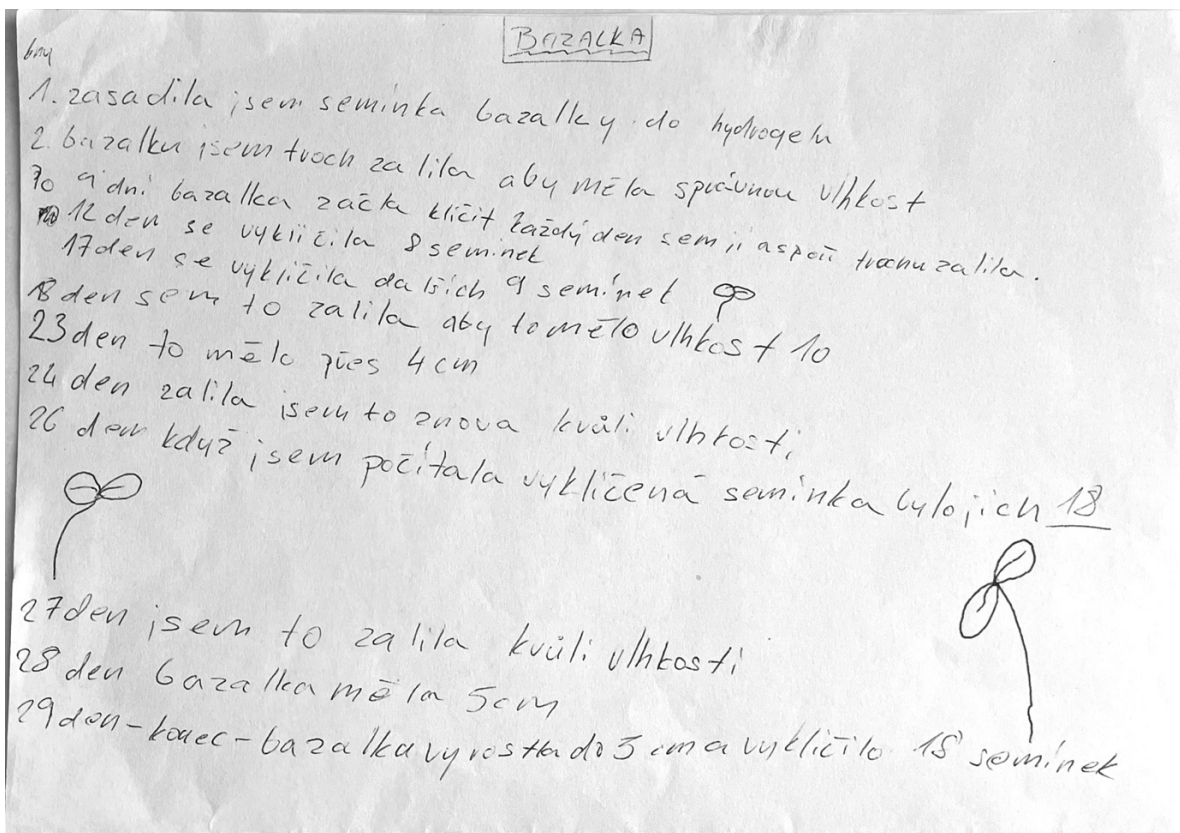 BAZALKA
dny
1. zasadila jsem semínka bazalky do hydrogelu
2. bazalku jsem troch zalila aby měla správnou vlhkost
Po 9 dní bazalka začla klíčit každý den sem ji aspoň trochu zalila.
12 den se vyklíčila 8 semínek
17 den se vyklíčila dalších 9 semínek
18 den sem to zalila aby to mělo vlhkost 10
23 den to mělo přes 4 cm
24 den zalila jsem to znova kvůli vlhkosti
26 den když jsem počítala vyklíčená semínka bylo jich 18
27 den jsem to zalila kvůli vlhkosti
28 den bazalka měla 5cm
29 den - konec - bazalka vyrostla do 5 cm a vyklíčilo 18 semínek